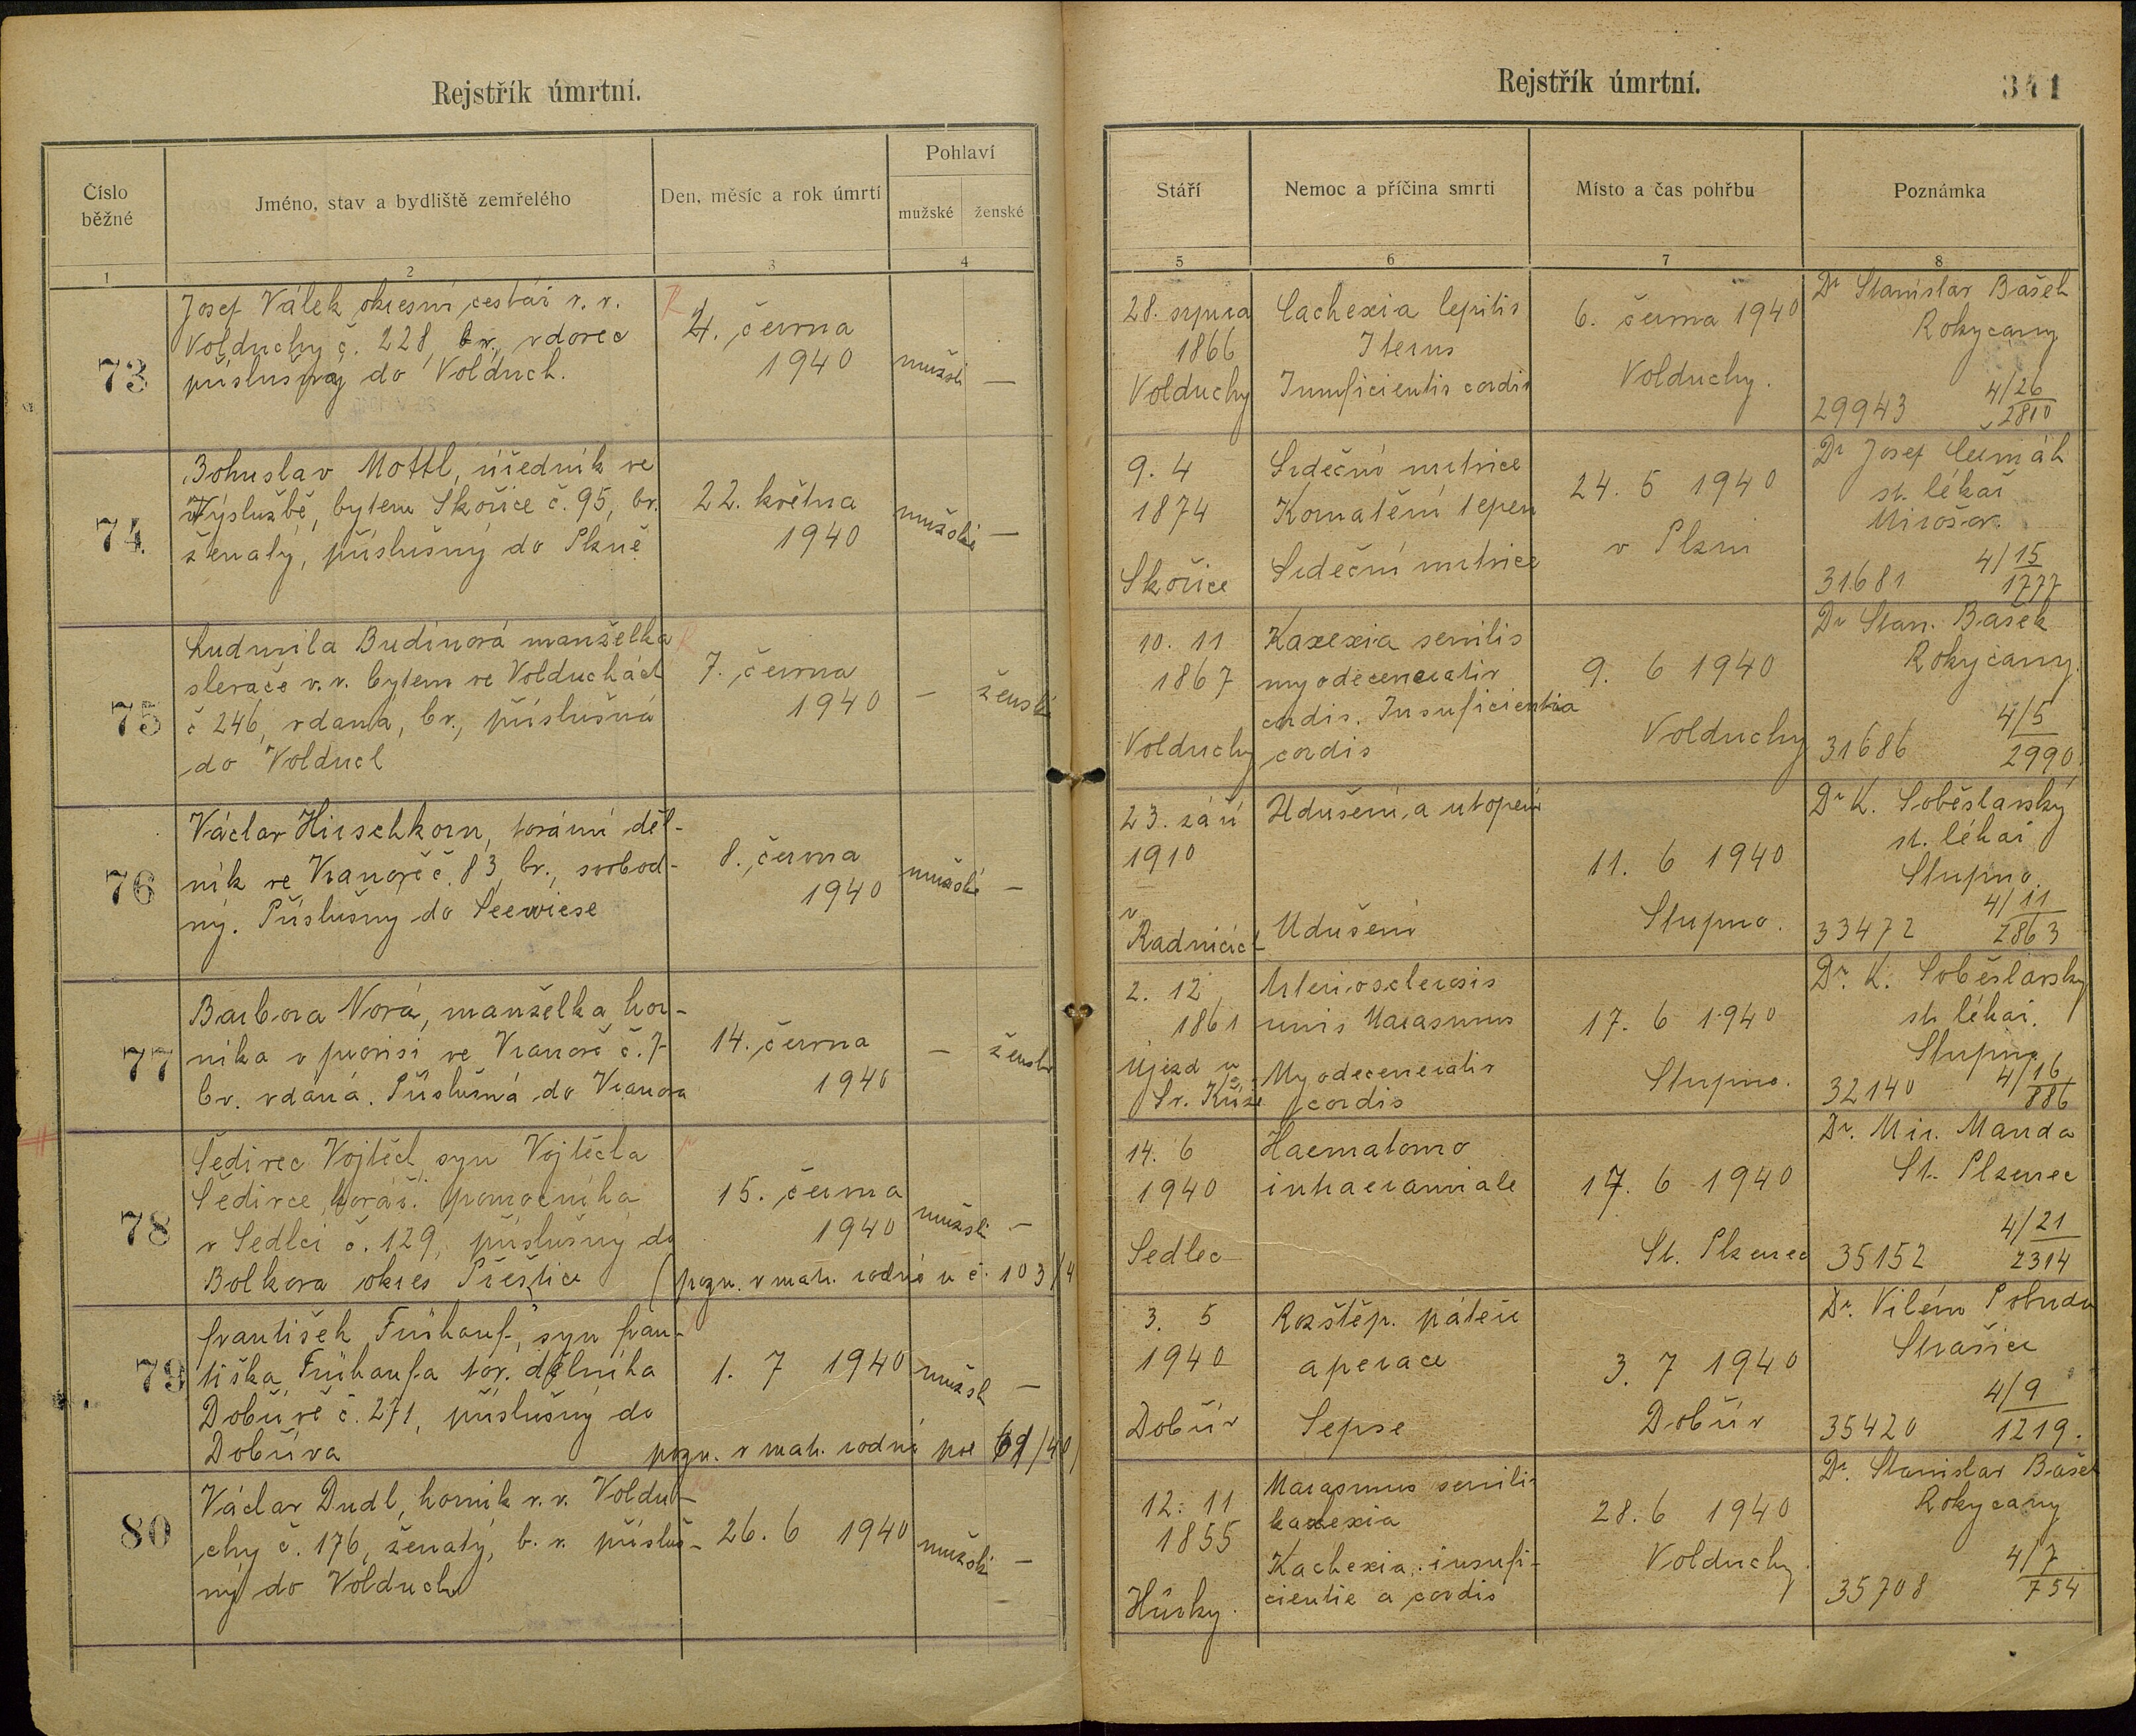 Rejstřík úmrtní.
Číslo běžné
Jméno, stav a bydliště zemřelého
Den, měsíc a rok úmrtí
Pohlaví
mužské
ženské
1
2
3
4
73
Josef Válek okresní cestář v. v.
Volduchy č. 228, bv., vdovec
příslušný do Volduch.
4. června
1940
mužské
—
74
Bohuslav Mottl, úředník ve
výslužbě, bytem Skořice č. 95, bv.
ženatý, příslušný do Plzně
22. května
1940
mužské
—
75
Ludmila Budínová manželka
slevače v. v. bytem ve Volduchách
č 246, vdaná, bv., příslušná
do Volduch
7. června
1940
—
ženské
76
Václav Hirschkorn, tovární děl-
ník ve Vranově č. 83, bv., svobod-
ný. Příslušný do Seewiese
8. června
1940
mužské
—
77
Barbora Nová, manželka hor-
níka v provisi ve Vranově č. 7
bv. vdaná. Příslušná do Vranova
14. června
1940
—
ženské
78
Šedivec Vojtěch, syn Vojtěcha
Šedivce, kovář. pomocníka
v Sedlci č. 129, příslušný do
Bolkova okres Přeštice
(pozn. v matr. rodné u č. 103/4
15. června
1940
mužské
—
79
František Frühauf, syn Fran-
tiška Frühaufa tov. dělníka
Dobřívě č. 271, příslušný do
Dobříva
pozn. v matr. rodné
1. 7 1940
mužsk
—
80
Václav Dudl, horník v. v. Voldu-
chy č. 176, ženatý, b. v. přísluš-
ný do Volduch
26. 6 1940
mužské
—
Rejstřík úmrtní.
341
Stáří
Nemoc a příčina smrti
Místo a čas pohřbu
Poznámka
5
6
7
8
28. srpna
1866
Volduchy
Cachexia
Iterus
cordis
6. června 1940
Volduchy.
Dr Stanislav Bašek
Rokycany
29943
4/26
2810
9. 4
1874
Skořice
Srdeční mrtvice
Kornatění tepen
Srdeční mrtvice
24. 5 1940
v Plzni
Dr Josef Čermák
st. lékař
Mirošov.
31681
4/15
1777
10. 11
1867
Volduchy
Kaxexia senilis
myodeceneratir
cordis. Insuficientia
cordis
9. 6 1940
Volduchy
Dr Stan. Bašek
Rokycany.
31686
4/5
2990
23. září
1910
v
Radnicích
Udušení, a utopení
Udušení
11. 6 1940
Stupno.
Dr K. Soběslavský
st. lékař
Stupno.
33472
4/11
2863
2. 12
1861
Újezd u
Sv. Kříže
Arteriosclerosis
unis Marasmus
Myodeceneratir
cordis
17. 6 1940
Stupno.
Dr. K. Soběslavský
st. lékař.
Stupno.
32140
4/16
886
14. 6
1940
Sedlec
Haematomo
intracraniale
17. 6 1940
St. Plzenec
Dr. Mir. Manda
St. Plzenec
35152
4/21
2314
3. 5
1940
Dobřív
Rozštěp. páteře
aperace
Sepse
3. 7 1940
Dobřív
Dr. Vilém Pobuda
Strašice
35420
4/9
1219.
12. 11
1855
Hůrky.
Marasmus senilis
kaxexia
Kachexia. insufi-
cientie a cordis
28. 6 1940
Volduchy.
Dr. Stanislav Bašek
Rokycany
35708
4/7
754